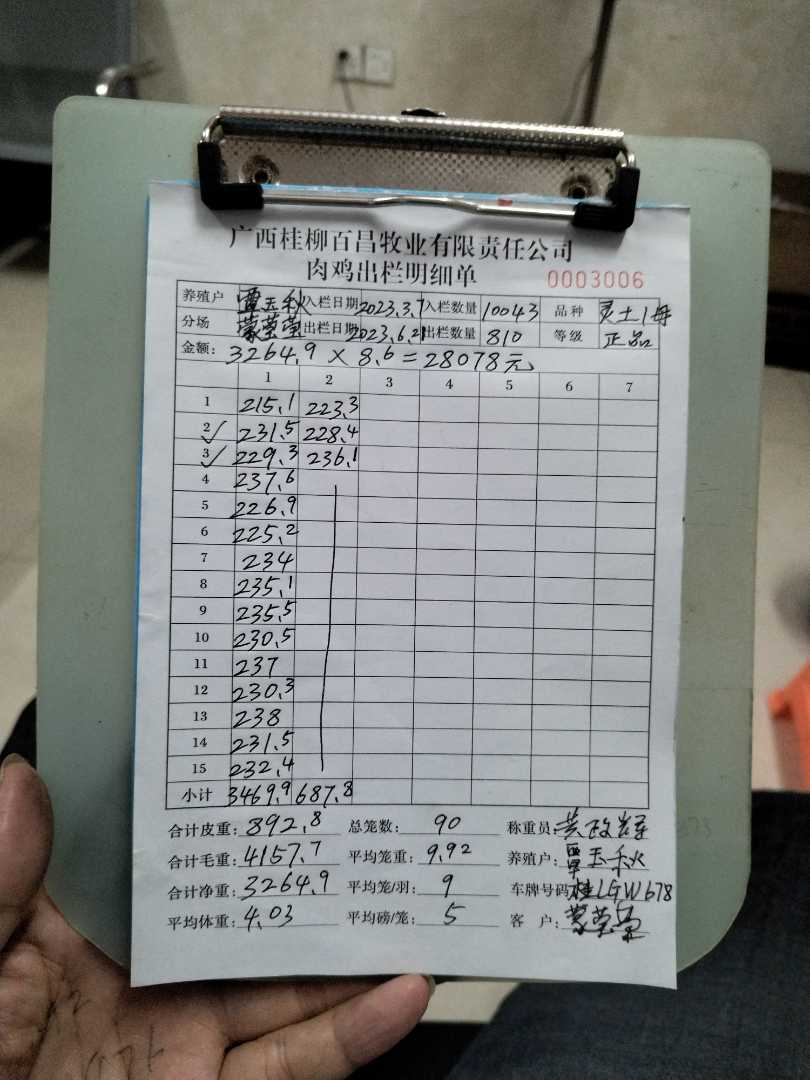 广西桂柳百昌牧业有限责任公司
肉鸡出栏明细单 0003006
养殖户 覃玉秋 入栏日期 2023.3.7 入栏数量 10043 品种 灵土1母
分场 蒙莹莹 出栏日期 2023.6.21 出栏数量 810 等级 正品
金额: 3264.9 × 8.6 = 28078元
1 2 3 4 5 6 7
1 215.1 223.3
2 231.5 228.4
3 229.3 236.1
4 237.6
5 226.9
6 225.2
7 234
8 235.1
9 235.5
10 230.5
11 237
12 230.3
13 238
14 231.5
15 232.4
小计 3469.9 687.8
合计皮重: 892.8 总笼数: 90 称重员:
合计毛重: 4157.7 平均笼重: 9.92 养殖户: 覃玉秋
合计净重: 3264.9 平均笼/羽: 9 车牌号码 桂LGW678
平均体重: 4.03 平均磅/笼: 5 客 户: 蒙莹莹